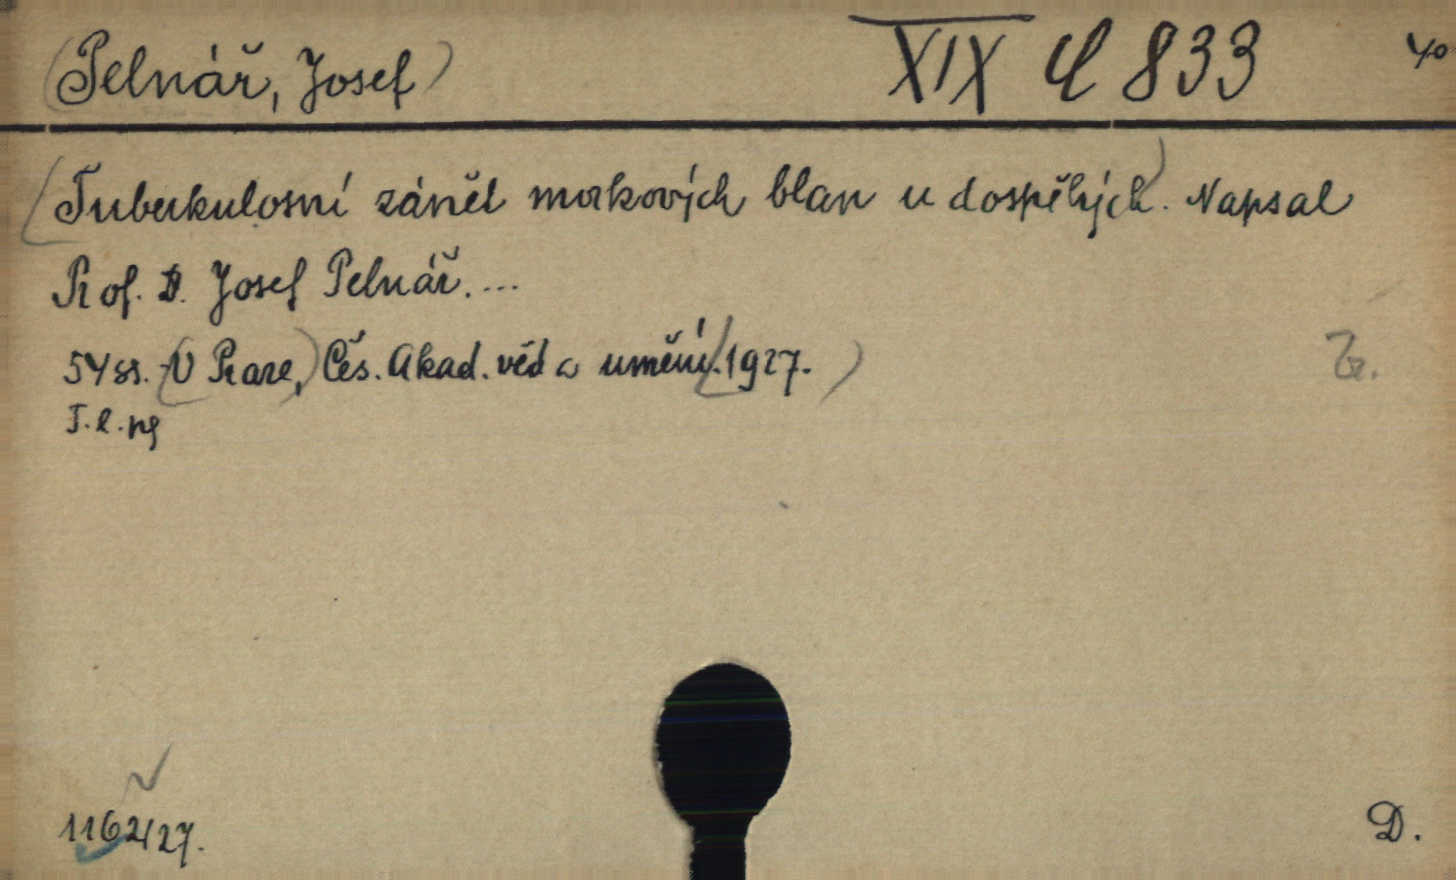 (Pelnář, Josef) XIX C 833 4o
(Tuberkulosní zánět mozkových blan u dospělých). Napsal
Prof. D. Josef Pelnář. ...
54 ss. (V Praze,) Čes. Akad. věd a umění (1927.)
T. l. ng
1162/27. D.